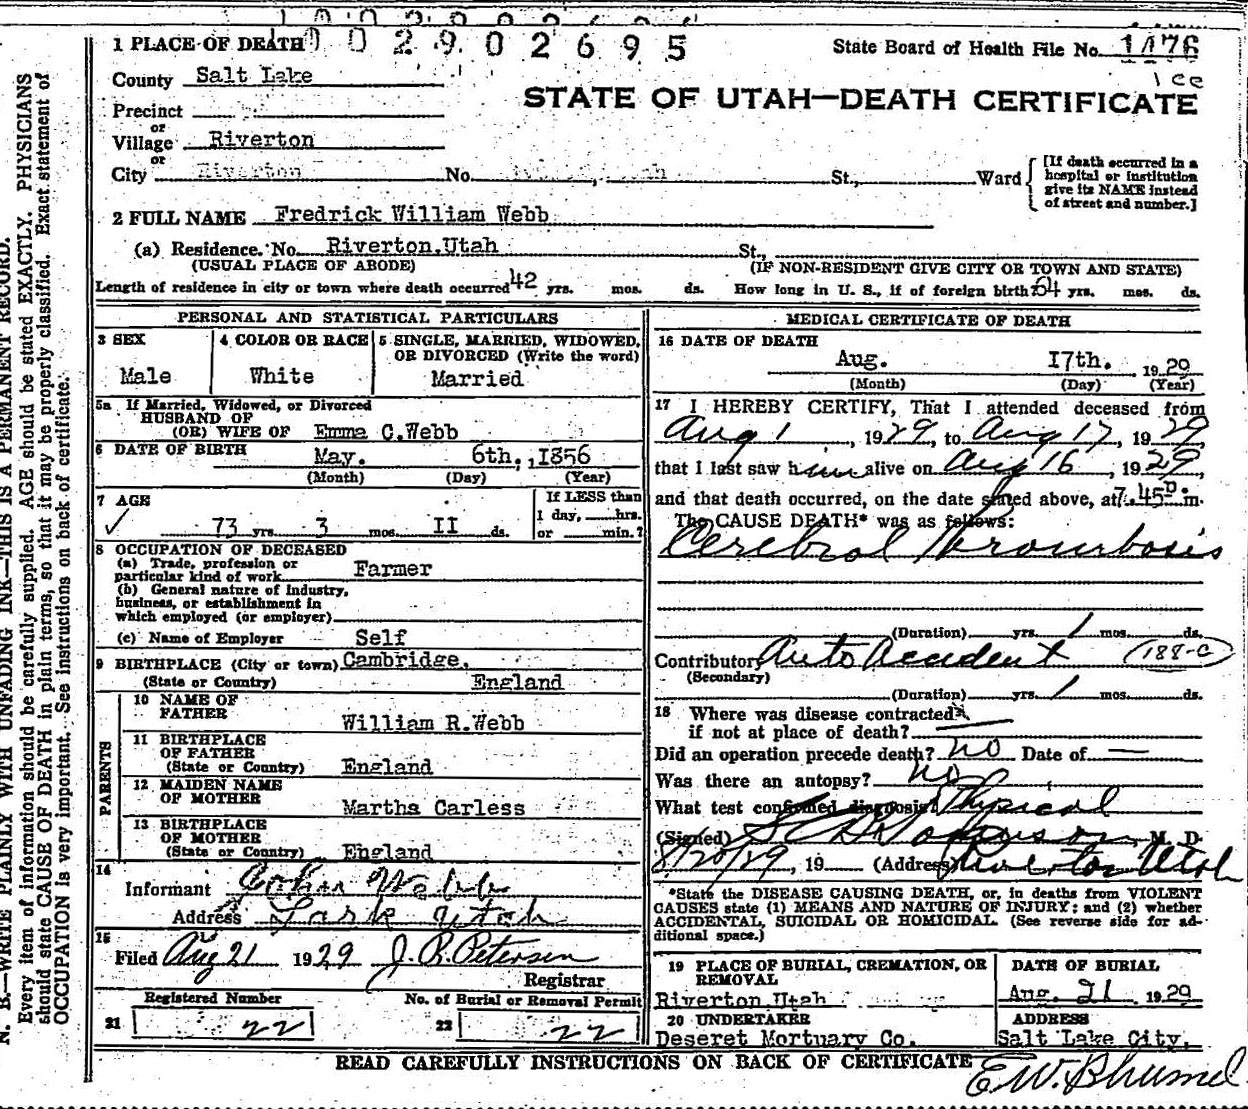 1 PLACE OF DEATH 0 0 2 9 0 2 6 9 5 State Board of Health File No. 1476
County Salt Lake
STATE OF UTAH—DEATH CERTIFICATE
Precinct
or
Village Riverton
or
City Riverton No. St., Ward
[If death occurred in a
hospital or institution
give its NAME instead
of street and number.]
2 FULL NAME Fredrick William Webb
(a) Residence. No. Riverton, Utah St.,
(USUAL PLACE OF ABODE) (IF NON-RESIDENT GIVE CITY OR TOWN AND STATE)
Length of residence in city or town where death occurred 42 yrs. mos. ds. How long in U. S., if of foreign birth? 64 yrs. mos. ds.
PERSONAL AND STATISTICAL PARTICULARS
3 SEX
Male
4 COLOR OR RACE
White
5 SINGLE, MARRIED, WIDOWED,
OR DIVORCED (Write the word)
Married
5a If Married, Widowed, or Divorced
HUSBAND OF
(OR) WIFE OF Emma C.Webb
6 DATE OF BIRTH
May. 6th. ,1856
(Month) (Day) (Year)
7 AGE
73 yrs. 3 mos. II ds.
If LESS than
1 day, hrs.
or min.?
8 OCCUPATION OF DECEASED
(a) Trade, profession or
particular kind of work Farmer
(b) General nature of Industry,
business, or establishment in
which employed (or employer)
(c) Name of Employer Self
9 BIRTHPLACE (City or town) Cambridge,
(State or Country) England
PARENTS
10 NAME OF
FATHER William R.Webb
11 BIRTHPLACE
OF FATHER
(State or Country) England
12 MAIDEN NAME
OF MOTHER Martha Carless
13 BIRTHPLACE
OF MOTHER
(State or Country) England
14
Informant John Webb
Address Lark Utah
15
Filed Aug 21 1929 J. R. Petersen
Registrar
Registered Number No. of Burial or Removal Permit
21 22 22 22
MEDICAL CERTIFICATE OF DEATH
16 DATE OF DEATH
Aug. I7th. 1929
(Month) (Day) (Year)
17 I HEREBY CERTIFY, That I attended deceased from
Aug 1, 1929, to Aug 17, 1929,
that I last saw him alive on Aug 16, 1929
and that death occurred, on the date stated above, at 7.45 P. m.
The CAUSE DEATH* was as follows:
Cerebral Thrombosis
(Duration) yrs. 1 mos. ds.
Contributory Auto Accident 188-c
(Secondary)
(Duration) yrs. 1 mos. ds.
18 Where was disease contracted
if not at place of death?
Did an operation precede death? no Date of
Was there an autopsy? no
What test confirmed diagnosis? Physical
(Signed) M. D.
8/20/29, 19 (Address) Riverton Utah
*State the DISEASE CAUSING DEATH, or, in deaths from VIOLENT
CAUSES state (1) MEANS AND NATURE OF INJURY; and (2) whether
ACCIDENTAL, SUICIDAL OR HOMICIDAL. (See reverse side for ad-
ditional space.)
19 PLACE OF BURIAL, CREMATION, OR
REMOVAL
Riverton Utah
DATE OF BURIAL
Aug. 21 1929
20 UNDERTAKER
Deseret Mortuary Co.
ADDRESS
Salt Lake City,
READ CAREFULLY INSTRUCTIONS ON BACK OF CERTIFICATE
N. B.—WRITE PLAINLY WITH UNFADING INK—THIS IS A PERMANENT RECORD.
Every item of information should be carefully supplied. AGE should be stated EXACTLY. PHYSICIANS
should state CAUSE OF DEATH in plain terms, so that it may be properly classified. Exact statement of
OCCUPATION is very important. See instructions on back of certificate.